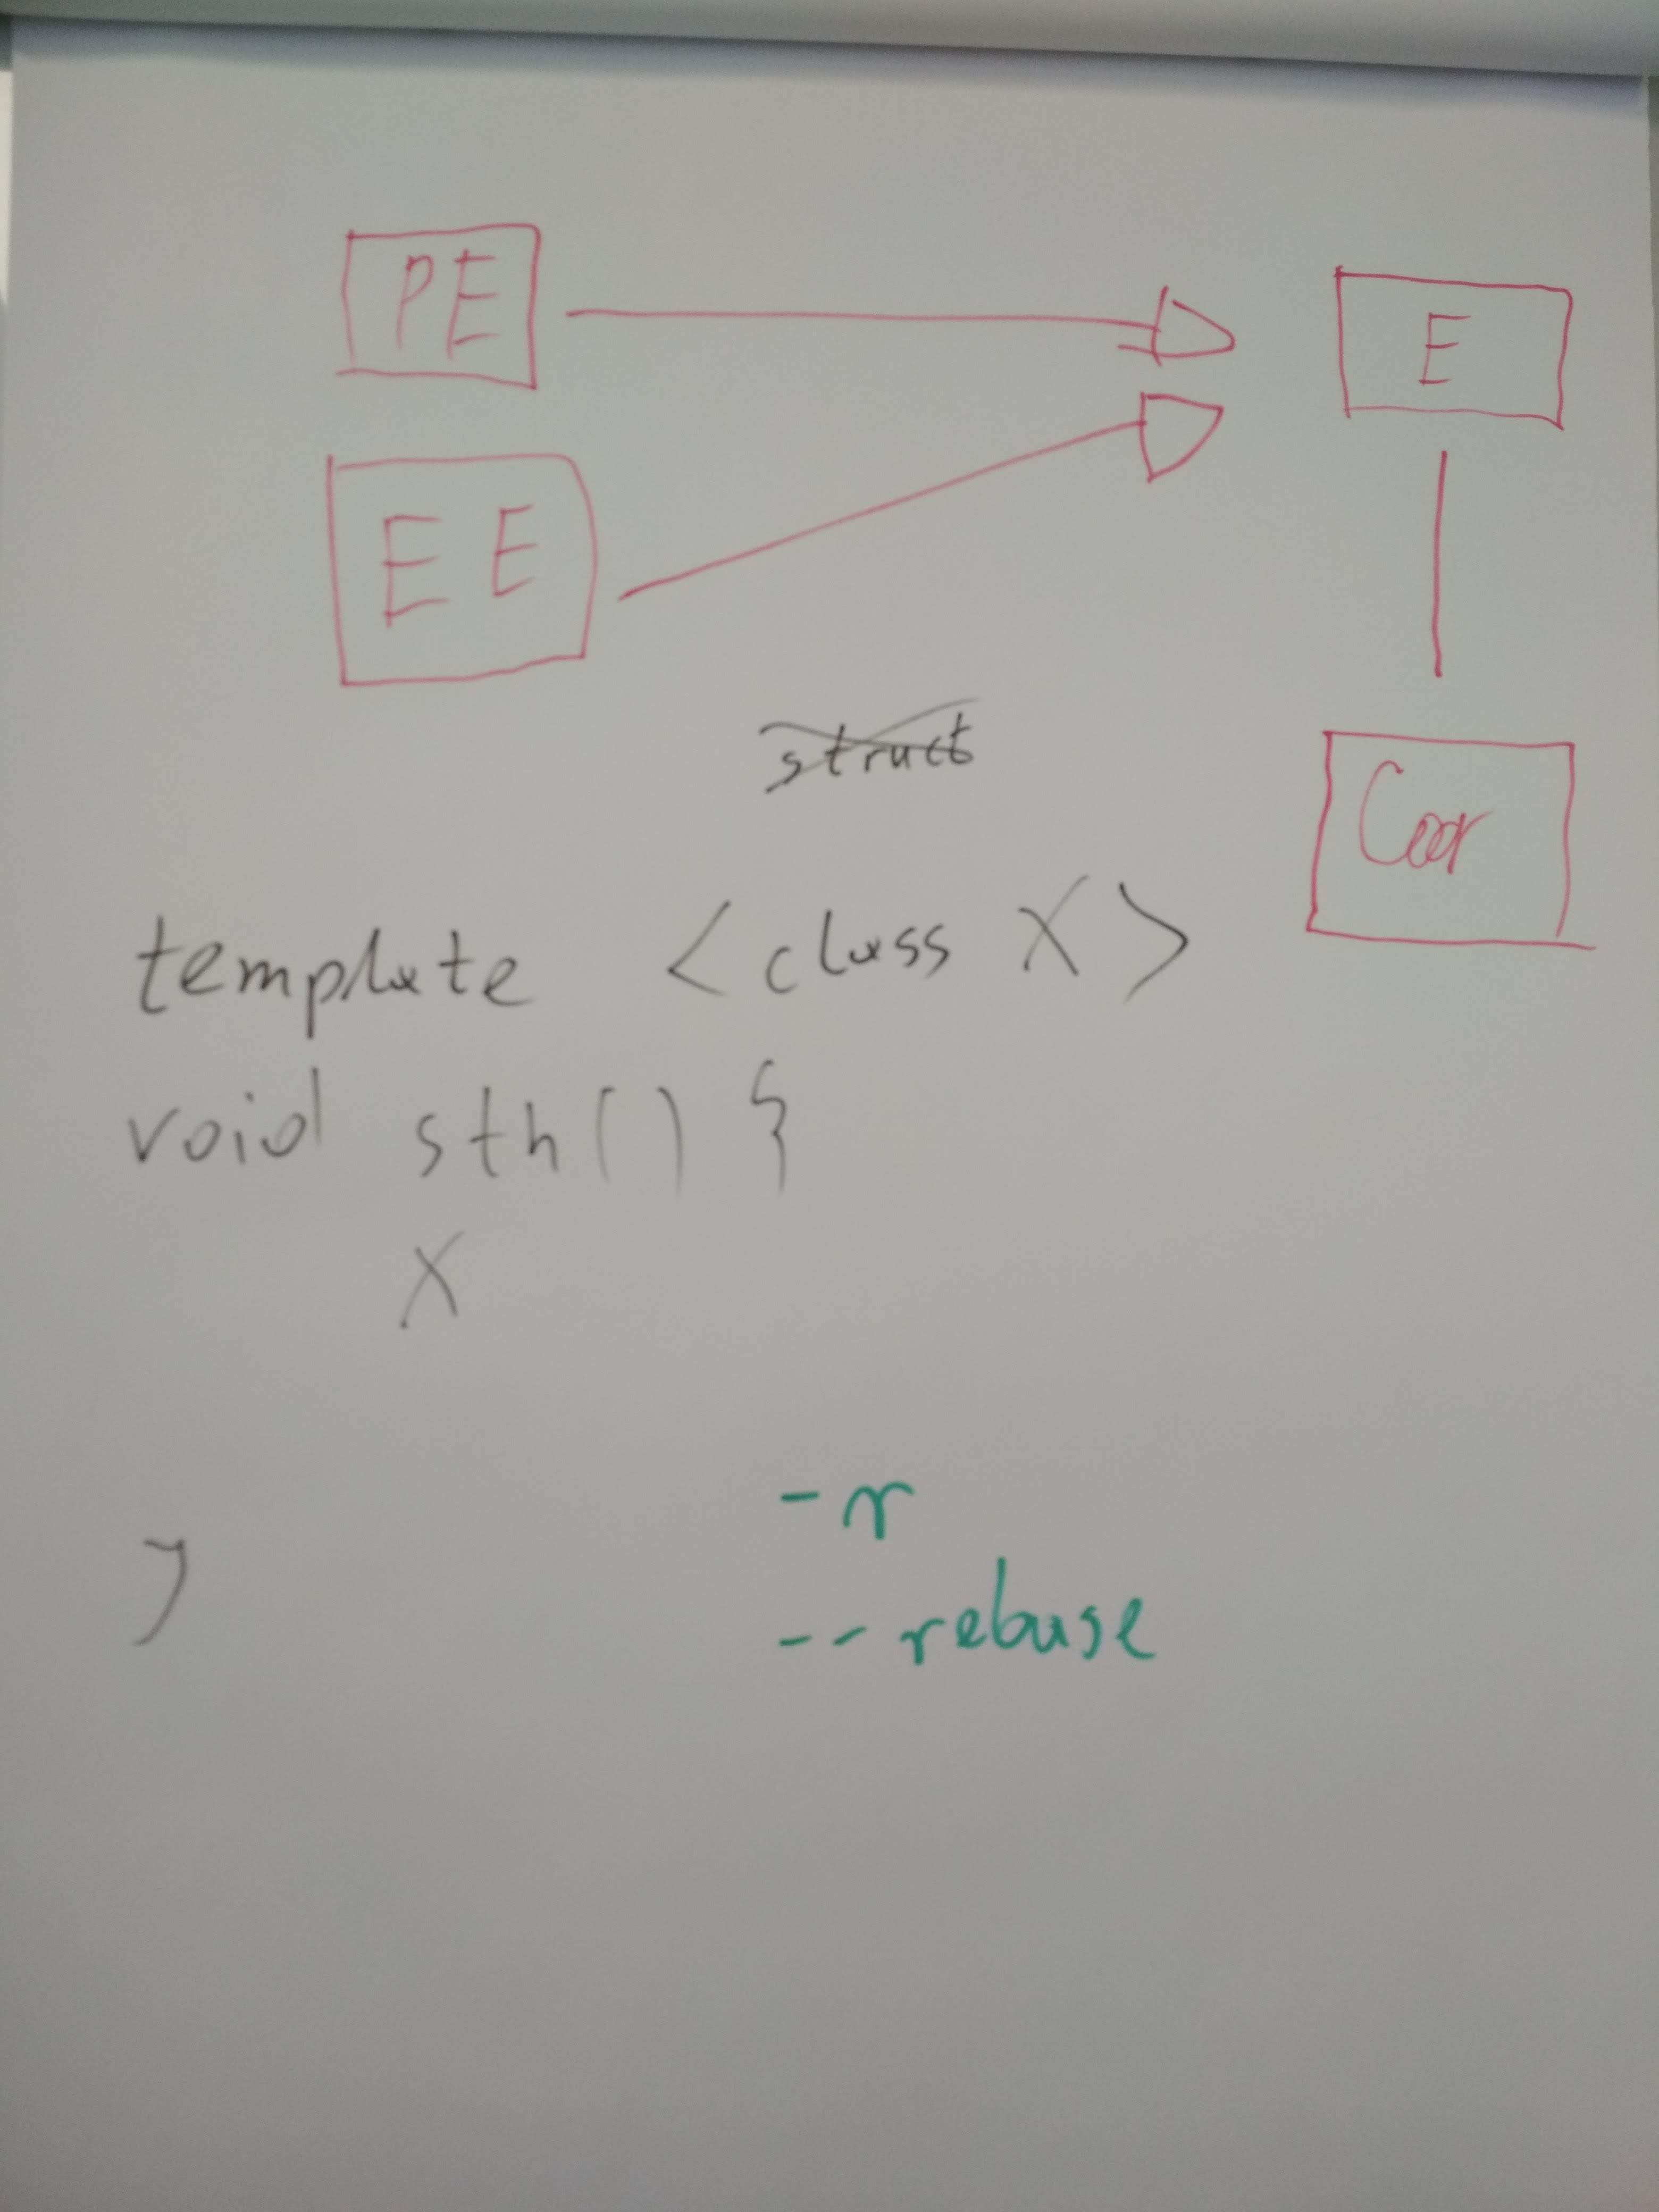 PE
E
EE
struct
Coor
template <class X>
void sth() {
X
}
-r
--rebase